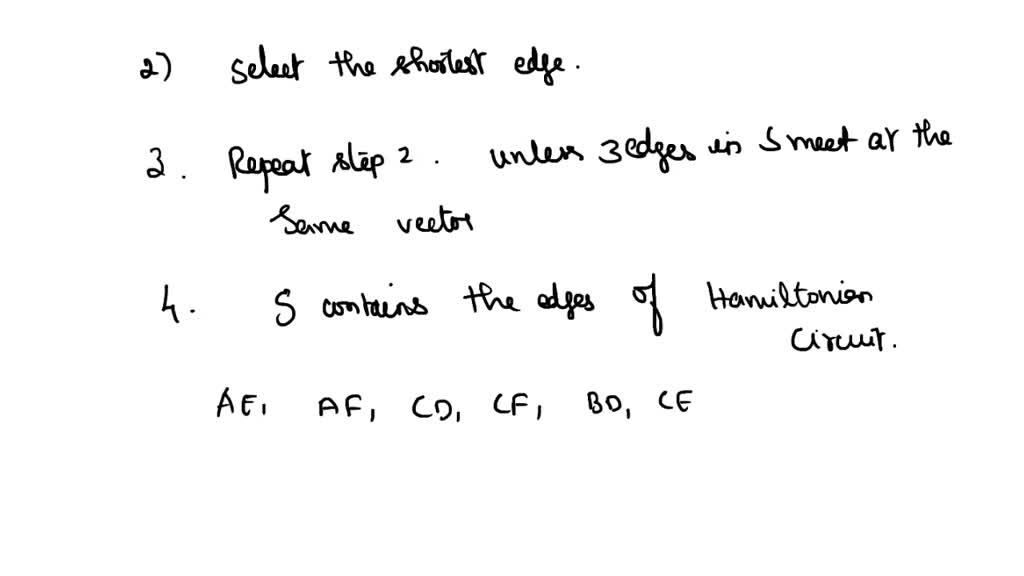 2) Select the shortest edge.
3. Repeat step 2. unless 3 edges in S meet at the
same vector
4. S contains the edges of Hamiltonian
Circuit.
AE, AF, CD, CF, BD, CE